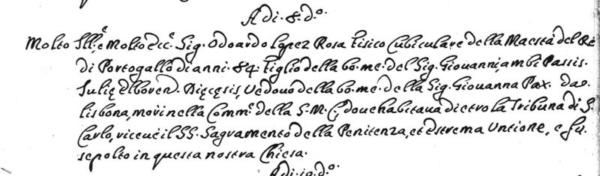 A di. 8. d.º
Molto Ill.e e Molto Ecc.e Sig. Odoardo Lopez Rosa fisico Cubiculare della Maestà del Rè
di Portogallo di anni. 84. figlio della bo: me: del Sig. Giovanni, ambi
Vedovo della bo: me: della Sig. Giovanna Pax. da
lisbona, morì nella Comm.e della S. M. C. dove habitava dietro la Tribuna di S.
Carlo, ricevè il SS. Sagramento della Penitenza, et estrema Untione, e fu
sepolto in questa nostra Chiesa.
A di. 10. d.º